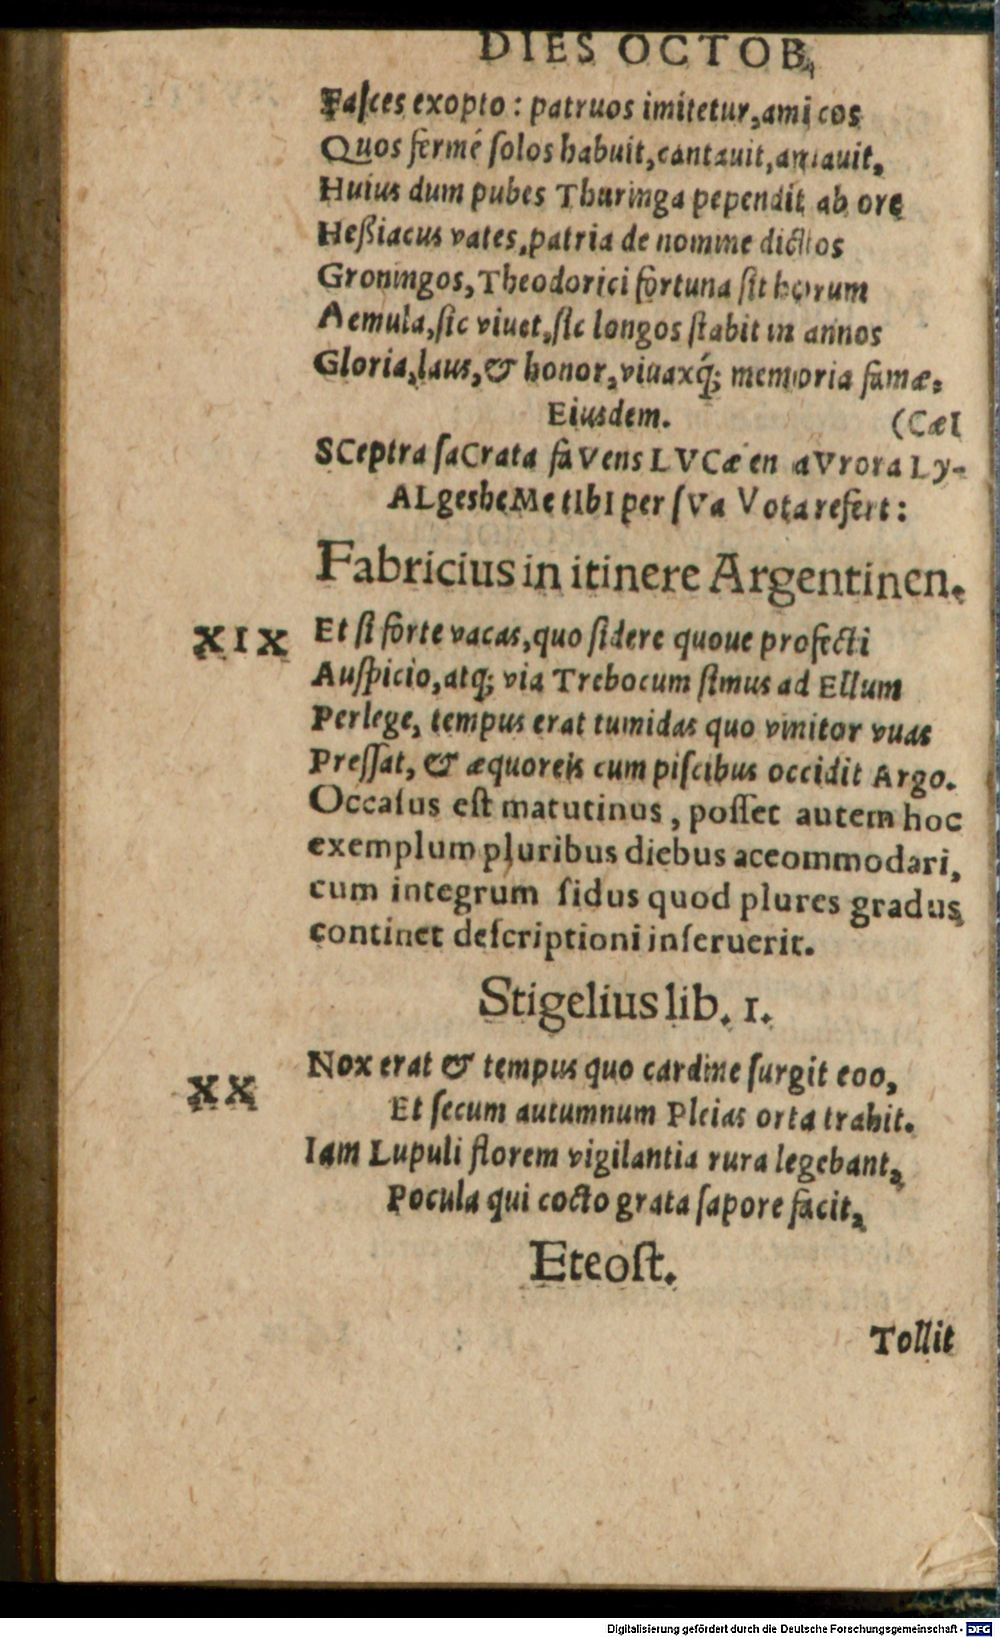 DIES OCTOB.
Fasces exopto: patruos imitetur, amicos
Quos fermé ſolos habuit, cantauit, amauit,
Huius dum pubes Thuringa pependit ab ore
Heßiacus vates, patria de nomine dictos
Groningos, Theodorici fortuna ſit horum
Aemula, ſic viuet, ſic longos ſtabit in annos
Gloria, laus, & honor, viuaxq́; memoria famæ.
Eiusdem. (Cæl
SCeptra ſaCrata faVens LVCæ en aVrora Ly-
ALgesheMe tIbI per ſVa Vota refert:
Fabricius in itinere Argentinen.
XIX Et ſi forte vacas, quo ſidere quoue profecti
Auſpicio, atq; via Trebocum ſimus ad Ellum
Perlege, tempus erat tumidas quo vinitor vuas
Preſſat, & æquoreis cum piſcibus occidit Argo.
Occaſus eſt matutinus, poſſet autem hoc
exemplum pluribus diebus aceommodari,
cum integrum ſidus quod plures gradus
continet deſcriptioni inſeruerit.
Stigelius lib. 1.
XX Nox erat & tempus quo cardine ſurgit eoo,
Et ſecum autumnum Pleias orta trahit.
Iam Lupuli florem vigilantia rura legebant,
Pocula qui cocto grata ſapore facit,
Eteoſt.
Tollit
Digitalisierung gefördert durch die Deutsche Forschungsgemeinschaft - DFG